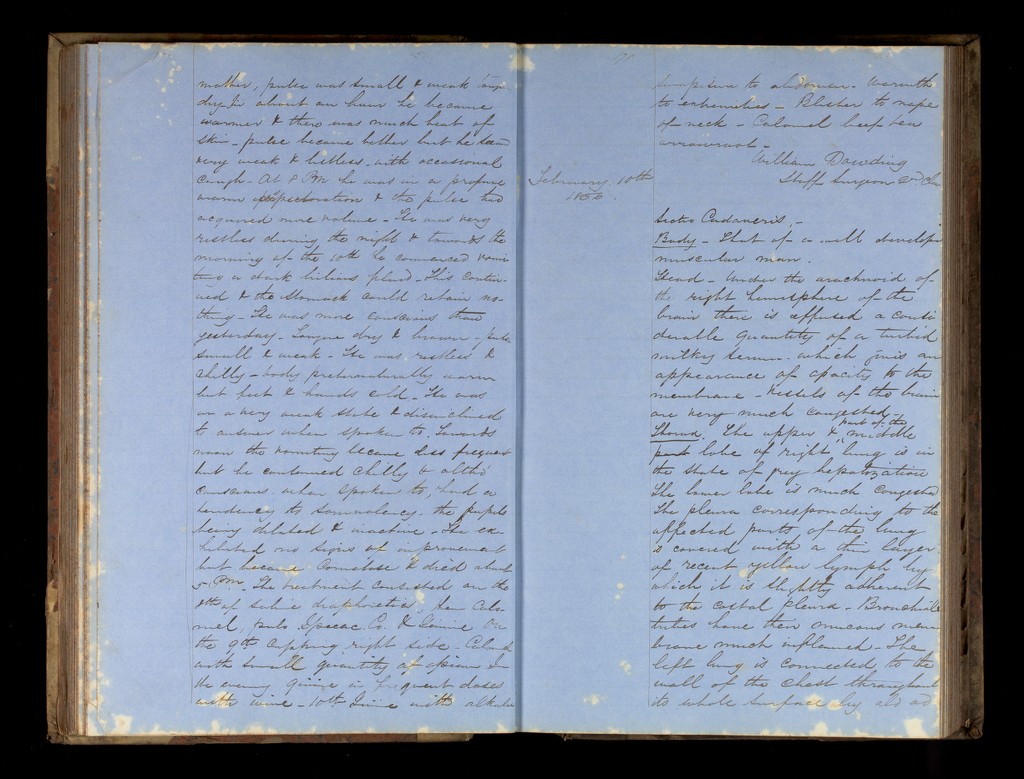 mother, pulse was small & weak tongue
dry. In about an hour he became
warmer & there was much heat of
skin - pulse became better but he
very weak & listless, with occasional
cough - At 8 PM he was in a profuse
warm & the pulse had
acquired more volume - He was very
restless during the night & towards the
morning of the 10th he commenced vomi
ting a dark bilious fluid - This contin-
ued & the stomach could retain no-
thing - He was more conscious than
yesterday - Tongue dry & brown - pulse
small & weak - He was restless &
chilly - body preternaturally warm
but feet & hands cold - He was
in a very weak state & disinclined
to answer when spoken to. Towards
noon the vomiting became less frequent
but he continued chilly & altho'
conscious when spoken to, had a
tendency to somnolency, the pupils
being dilated & inactive - He ex-
hibited no signs of improvement
but became Comatose & died about
5 PM - The treatment consisted on the
8th of saline diaphoretics, then Calo
mel, pulv Ipecac Co. & Quinine On
the 9th Cupping right side Calomel
with small quantity of opium In
the evening quinine in frequent doses
with wine - 10th Quinine with
to abdomen - Warmth
to extremities - Blister to nape
of neck - Calomel beef tea
arrowroot -
William Dowding
Staff Surgeon 2nd Class
February 10th
1856.
Sectio Cadaveris, -
Body - That of a well developed
muscular man.
Head - Under the arachnoid of
the right hemisphere of the
brain there is effused a consi
derable quantity of a turbid
milky serum which gives an
appearance of opacity to the
membrane - Vessels of the brain
are very much congested -
Thorax. The upper & part of the middle
lobe of right lung is in
the state of grey hepatization
The lower lobe is much congested
The pleura corresponding to the
affected parts of the lung
is covered with a thin layer
of recent yellow lymph by
which it is slightly adherent
to the costal pleura - Bronchial
tubes have their mucous mem
brane much inflamed - The
left lung is connected to the
wall of the chest throughout
its whole surface by old ad